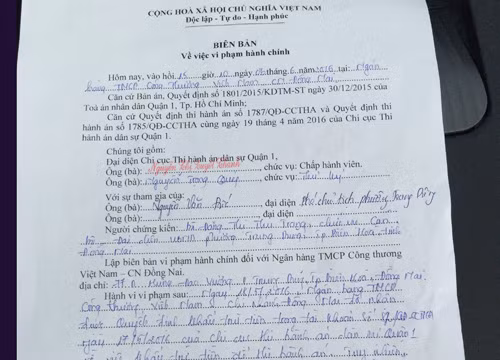 CỘNG HOÀ XÃ HỘI CHỦ NGHĨA VIỆT NAM
Độc lập - Tự do - Hạnh phúc
BIÊN BẢN
Về việc vi phạm hành chính
Hôm nay, vào hồi 15 giờ 10 ngày tháng 6 năm 2016 tại: Ngân
hàng TMCP Công Thương Việt Nam CN Đồng Nai
Căn cứ Bản án, Quyết định số 1801/2015/KDTM-ST ngày 30/12/2015 của
Toà án nhân dân Quận 1, Tp. Hồ Chí Minh;
Căn cứ Quyết định thi hành án số 1787/QĐ-CCTHA và Quyết định thi
hành án số 1785/QĐ-CCTHA cùng ngày 19 tháng 4 năm 2016 của Chi cục Thi
hành án dân sự Quận 1.
Chúng tôi gồm:
Đại diện Chi cục Thi hành án dân sự Quận 1,
Ông (bà): Nguyễn Thị Tuyết Thanh, chức vụ: Chấp hành viên.
Ông (bà): Nguyễn Trọng Quý, chức vụ: Thư ký
Với sự tham gia của:
Ông (bà): Nguyễn Văn, đại diện Phó chủ tịch phường Trung Dũng
Ông (bà): đại diện
Người chứng kiến: Bà Đặng Thị Thu Trang, chức vụ: Cán
bộ - Đại diện UBND phường Trung Dũng, Tp Biên Hoà, tỉnh
Đồng Nai.
Lập biên bản vi phạm hành chính đối với Ngân hàng TMCP Công thương
Việt Nam – CN Đồng Nai.
địa chỉ: Hùng Vương, Trung Dũng, Tp Biên Hoà, Đồng Nai
Hành vi vi phạm sau: Ngày 2016, Ngân hàng TMCP
Công thương Việt Nam - Chi nhánh Đồng Nai đã nhận
được Quyết định khấu trừ tiền trong tài khoản số
ngày 2016 của Chi cục Thi hành án dân sự Quận 1
về việc khấu trừ tiền để thi hành án